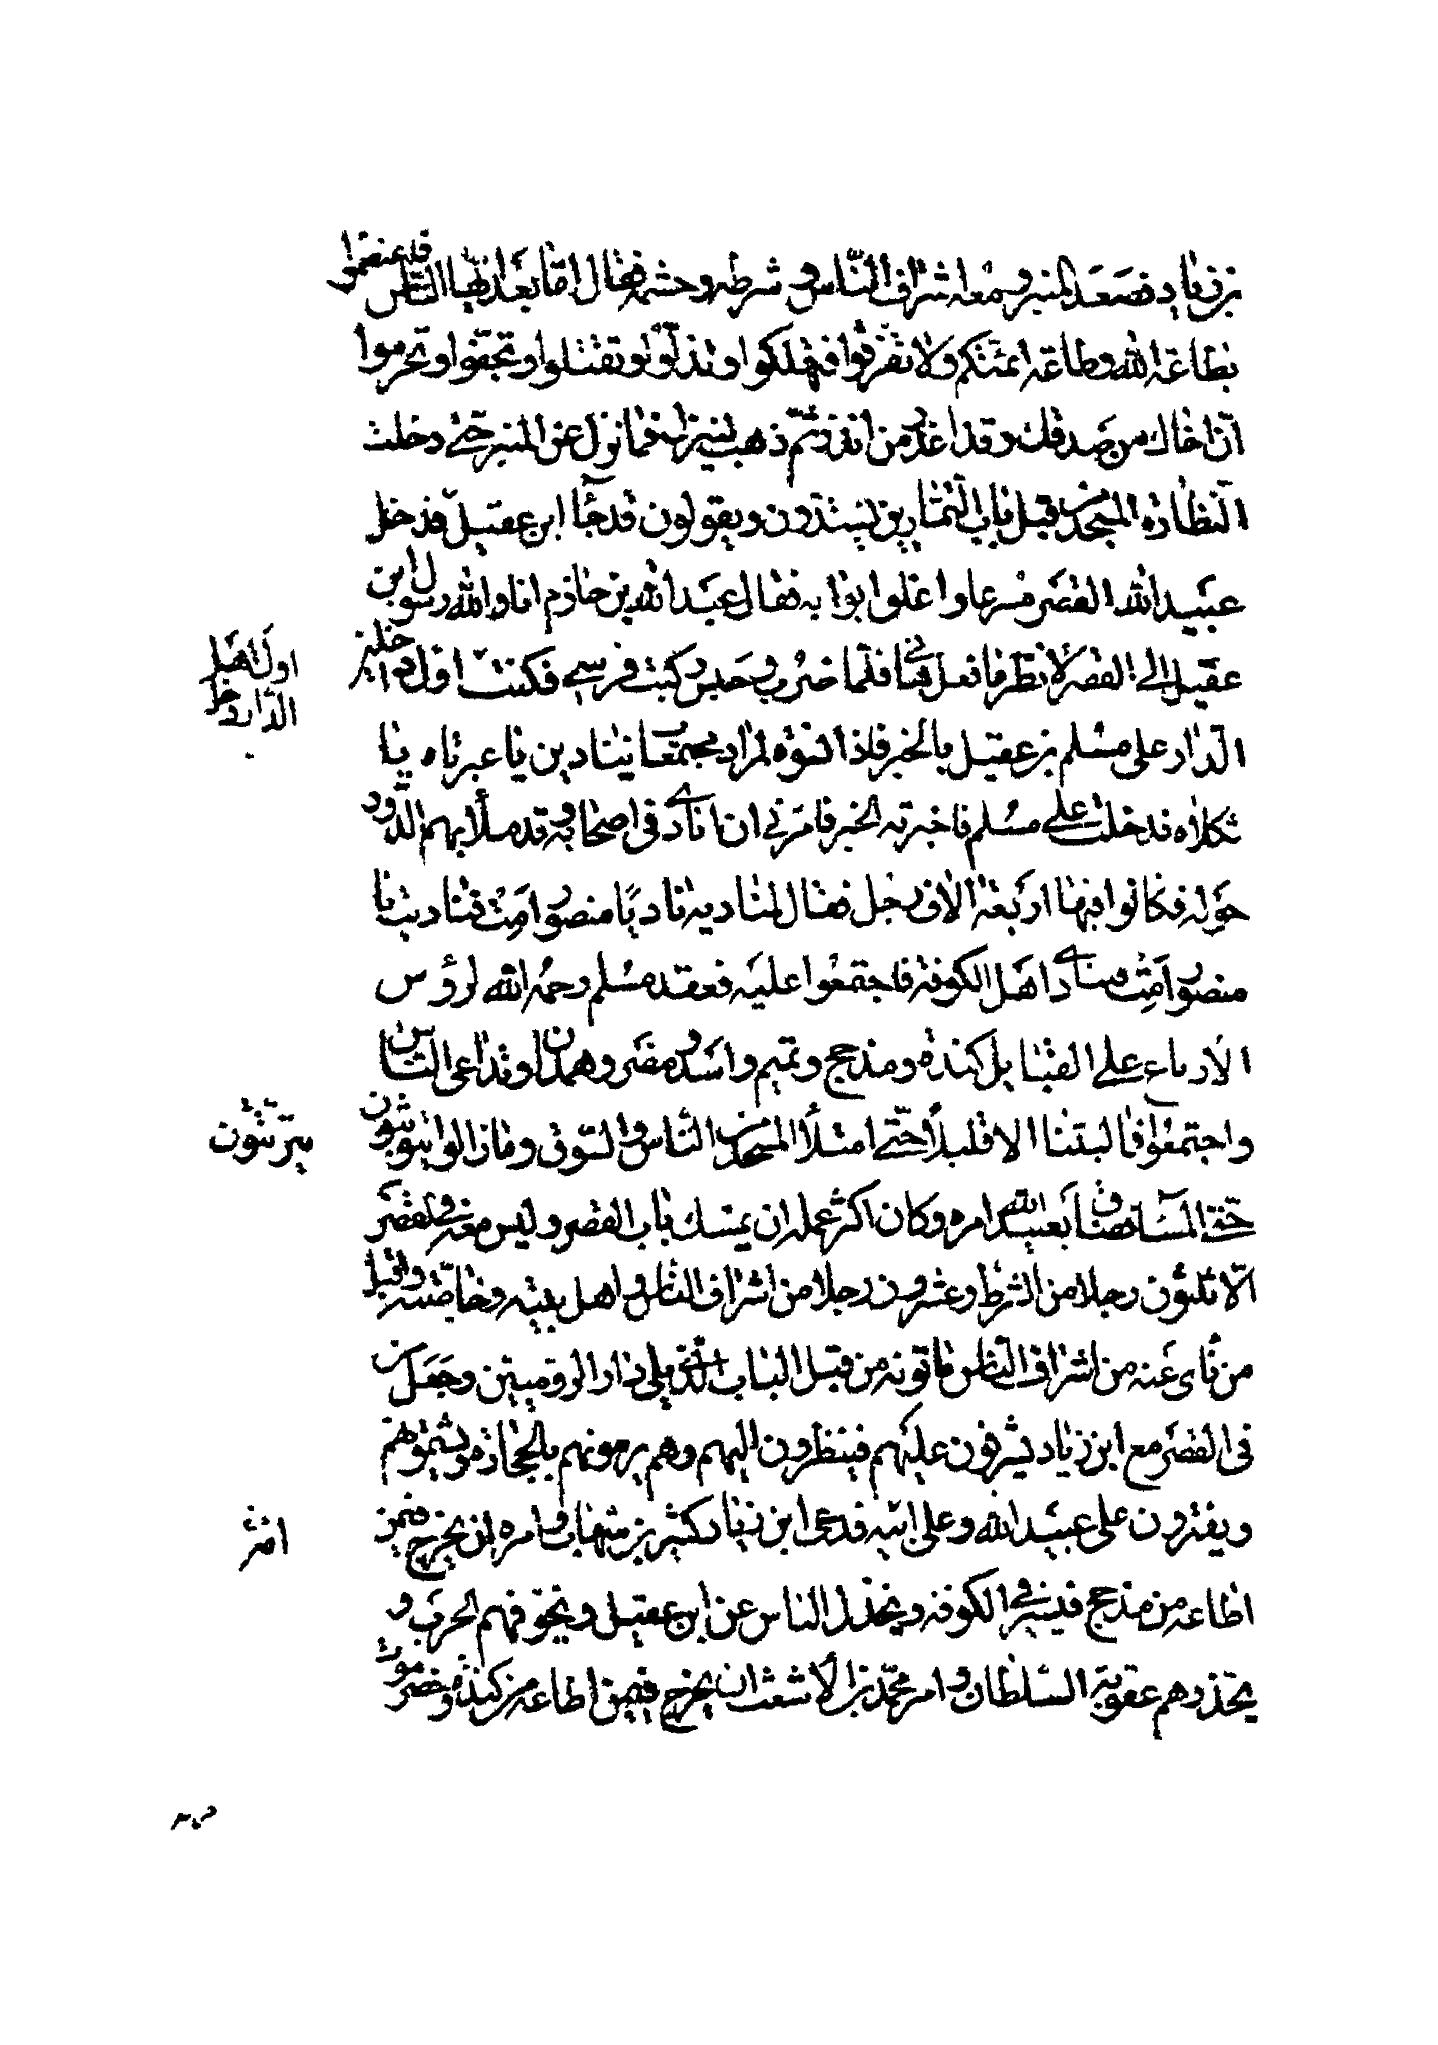 بن زياد فصعد المنبر ومعه اشراف الناس وشرطه وحشمه فقال اما بعد ايها الناس فاعتصموا
بطاعة الله وطاعة ائمتكم ولا تفرقوا فتهلكوا وتذلوا وتقتلوا وتجفوا وتحرموا
ان اخاك من صدقك وقد اعذر من انذر ثم ذهب لينزل فما نزل عن المنبر حتى دخلت
النظارة المسجد من قبل باب التمارين يشتدون ويقولون قد جاء ابن عقيل فدخل
عبيد الله القصر مسرعا واغلق ابوابه فقال عبد الله بن حازم انا والله رسول ابن
عقيل الى القصر لانظر ما فعل هاني فلما ضرب وحبس ركبت فرسي فكنت اول داخل
اول اهل
الدار دخل
الدار على مسلم بن عقيل بالخبر فاذا نسوة لمراد مجتمعات يتنادين يا عبرتاه يا
ثكلاه فدخلت على مسلم فاخبرته الخبر فامرني ان انادي في اصحابه وقد ملأ بهم الدور
حوله فكانوا فيها اربعة الاف رجل فقال لمناديه ناد يا منصور امت فناديت يا
منصور امت فتنادى اهل الكوفة فاجتمعوا عليه فعقد مسلم رحمه الله لرؤس
الارباع على القبايل كندة ومذحج وتميم واسد ومضر وهمدان وتداعى الناس
واجتمعوا فما لبثنا الا قليلا حتى امتلأ المسجد من الناس والسوق وما زالوا يتوثبون
يتوثبون
حتى المساء فضاق بعبيد الله امره وكان اكثر عمله ان يمسك باب القصر وليس معه في القصر
الا ثلثون رجلا من الشرط وعشرون رجلا من اشراف الناس واهل بيته وخاصته واقبل
من نأى عنه من اشراف الناس ياتونه من قبل الباب الذي يلي دار الروميين وجعل من
في القصر مع ابن زياد يشرفون عليهم فينظرون اليهم وهم يرمونهم بالحجارة ويشتمونهم
ويفترون على عبيد الله وعلى ابيه فدعى ابن زياد كثير بن شهاب وامره ان يخرج فيمن
اطاعه من مذحج فيسير في الكوفة ويخذل الناس عن ابن عقيل ويخوفهم الحرب و
يحذرهم عقوبة السلطان وامر محمد بن الاشعث ان يخرج فيمن اطاعه من كندة وحضرموت